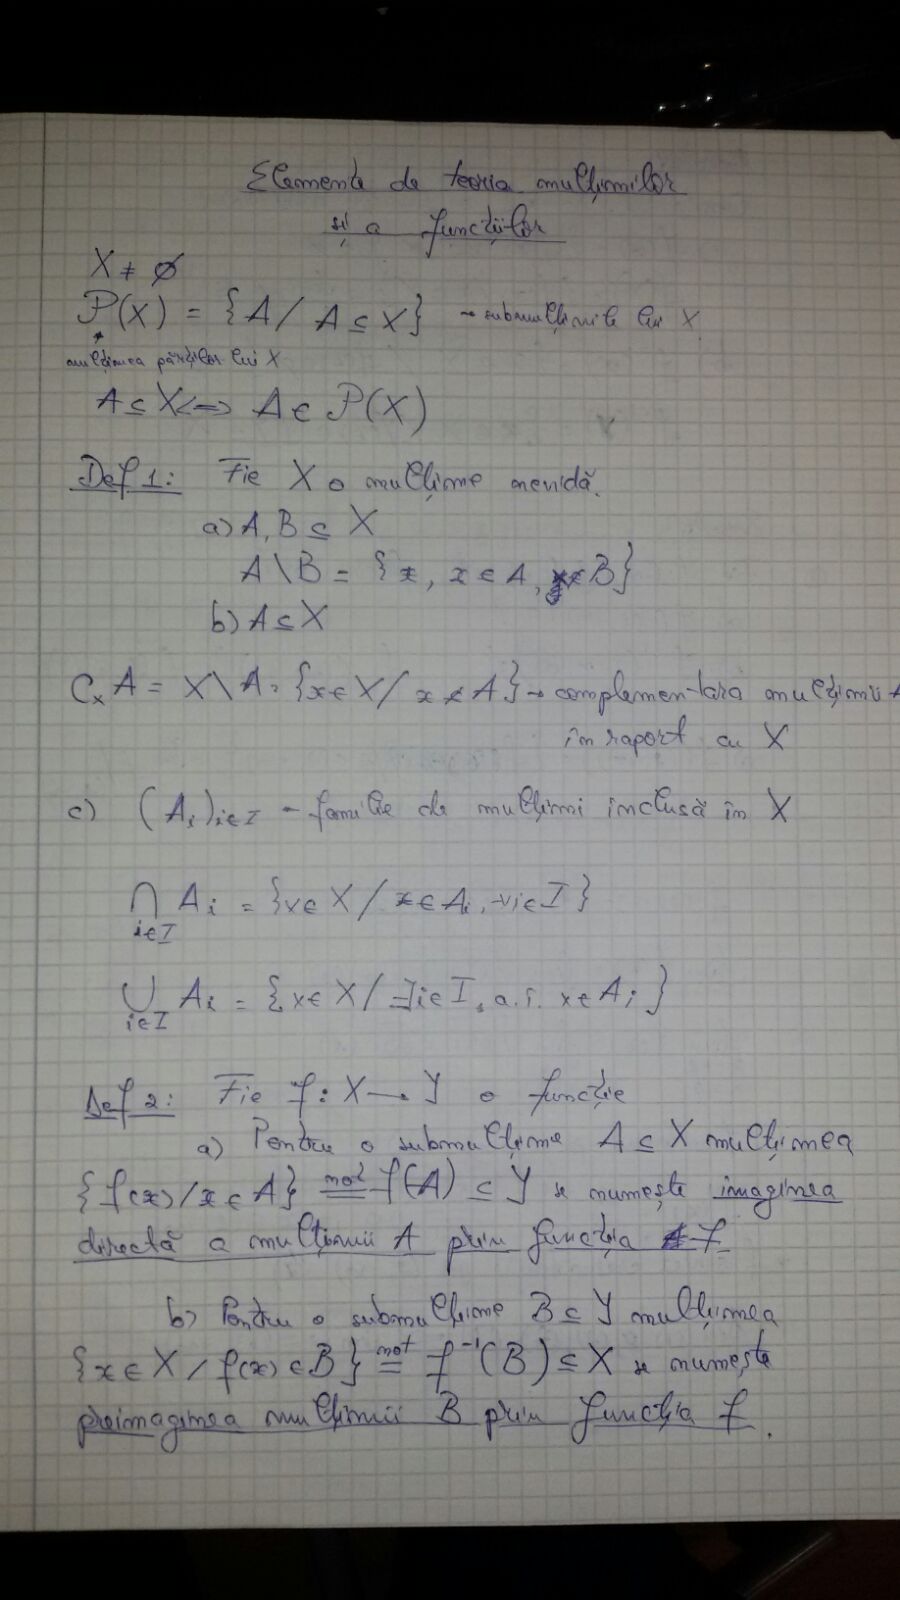 Elemente de teoria mulțimilor
și a funcțiilor
X ≠ ∅
P(X) = {A / A ⊆ X} → submulțimile lui X
mulțimea părților lui X
A ⊆ X <=> A ∈ P(X)
Def 1: Fie X o mulțime nevidă.
a) A, B ⊆ X
A \ B = {x, x ∈ A, x ∉ B}
b) A ⊆ X
C_x A = X \ A = {x ∈ X / x ∉ A} → complementara mulțimii A
în raport cu X
c) (A_i)_{i∈I} - familie de mulțimi inclusă în X
⋂ A_i = {x ∈ X / x ∈ A_i, ∀ i ∈ I}
i∈I
⋃ A_i = {x ∈ X / ∃ i ∈ I, a.î. x ∈ A_i}
i∈I
Def 2: Fie f : X → Y o funcție
a) Pentru o submulțime A ⊆ X mulțimea
{f(x) / x ∈ A} not= f(A) ⊆ Y se numește imaginea
directă a mulțimii A prin funcția f
b) Pentru o submulțime B ⊆ Y mulțimea
{x ∈ X / f(x) ∈ B} not= f⁻¹(B) ⊆ X se numește
preimaginea mulțimii B prin funcția f.